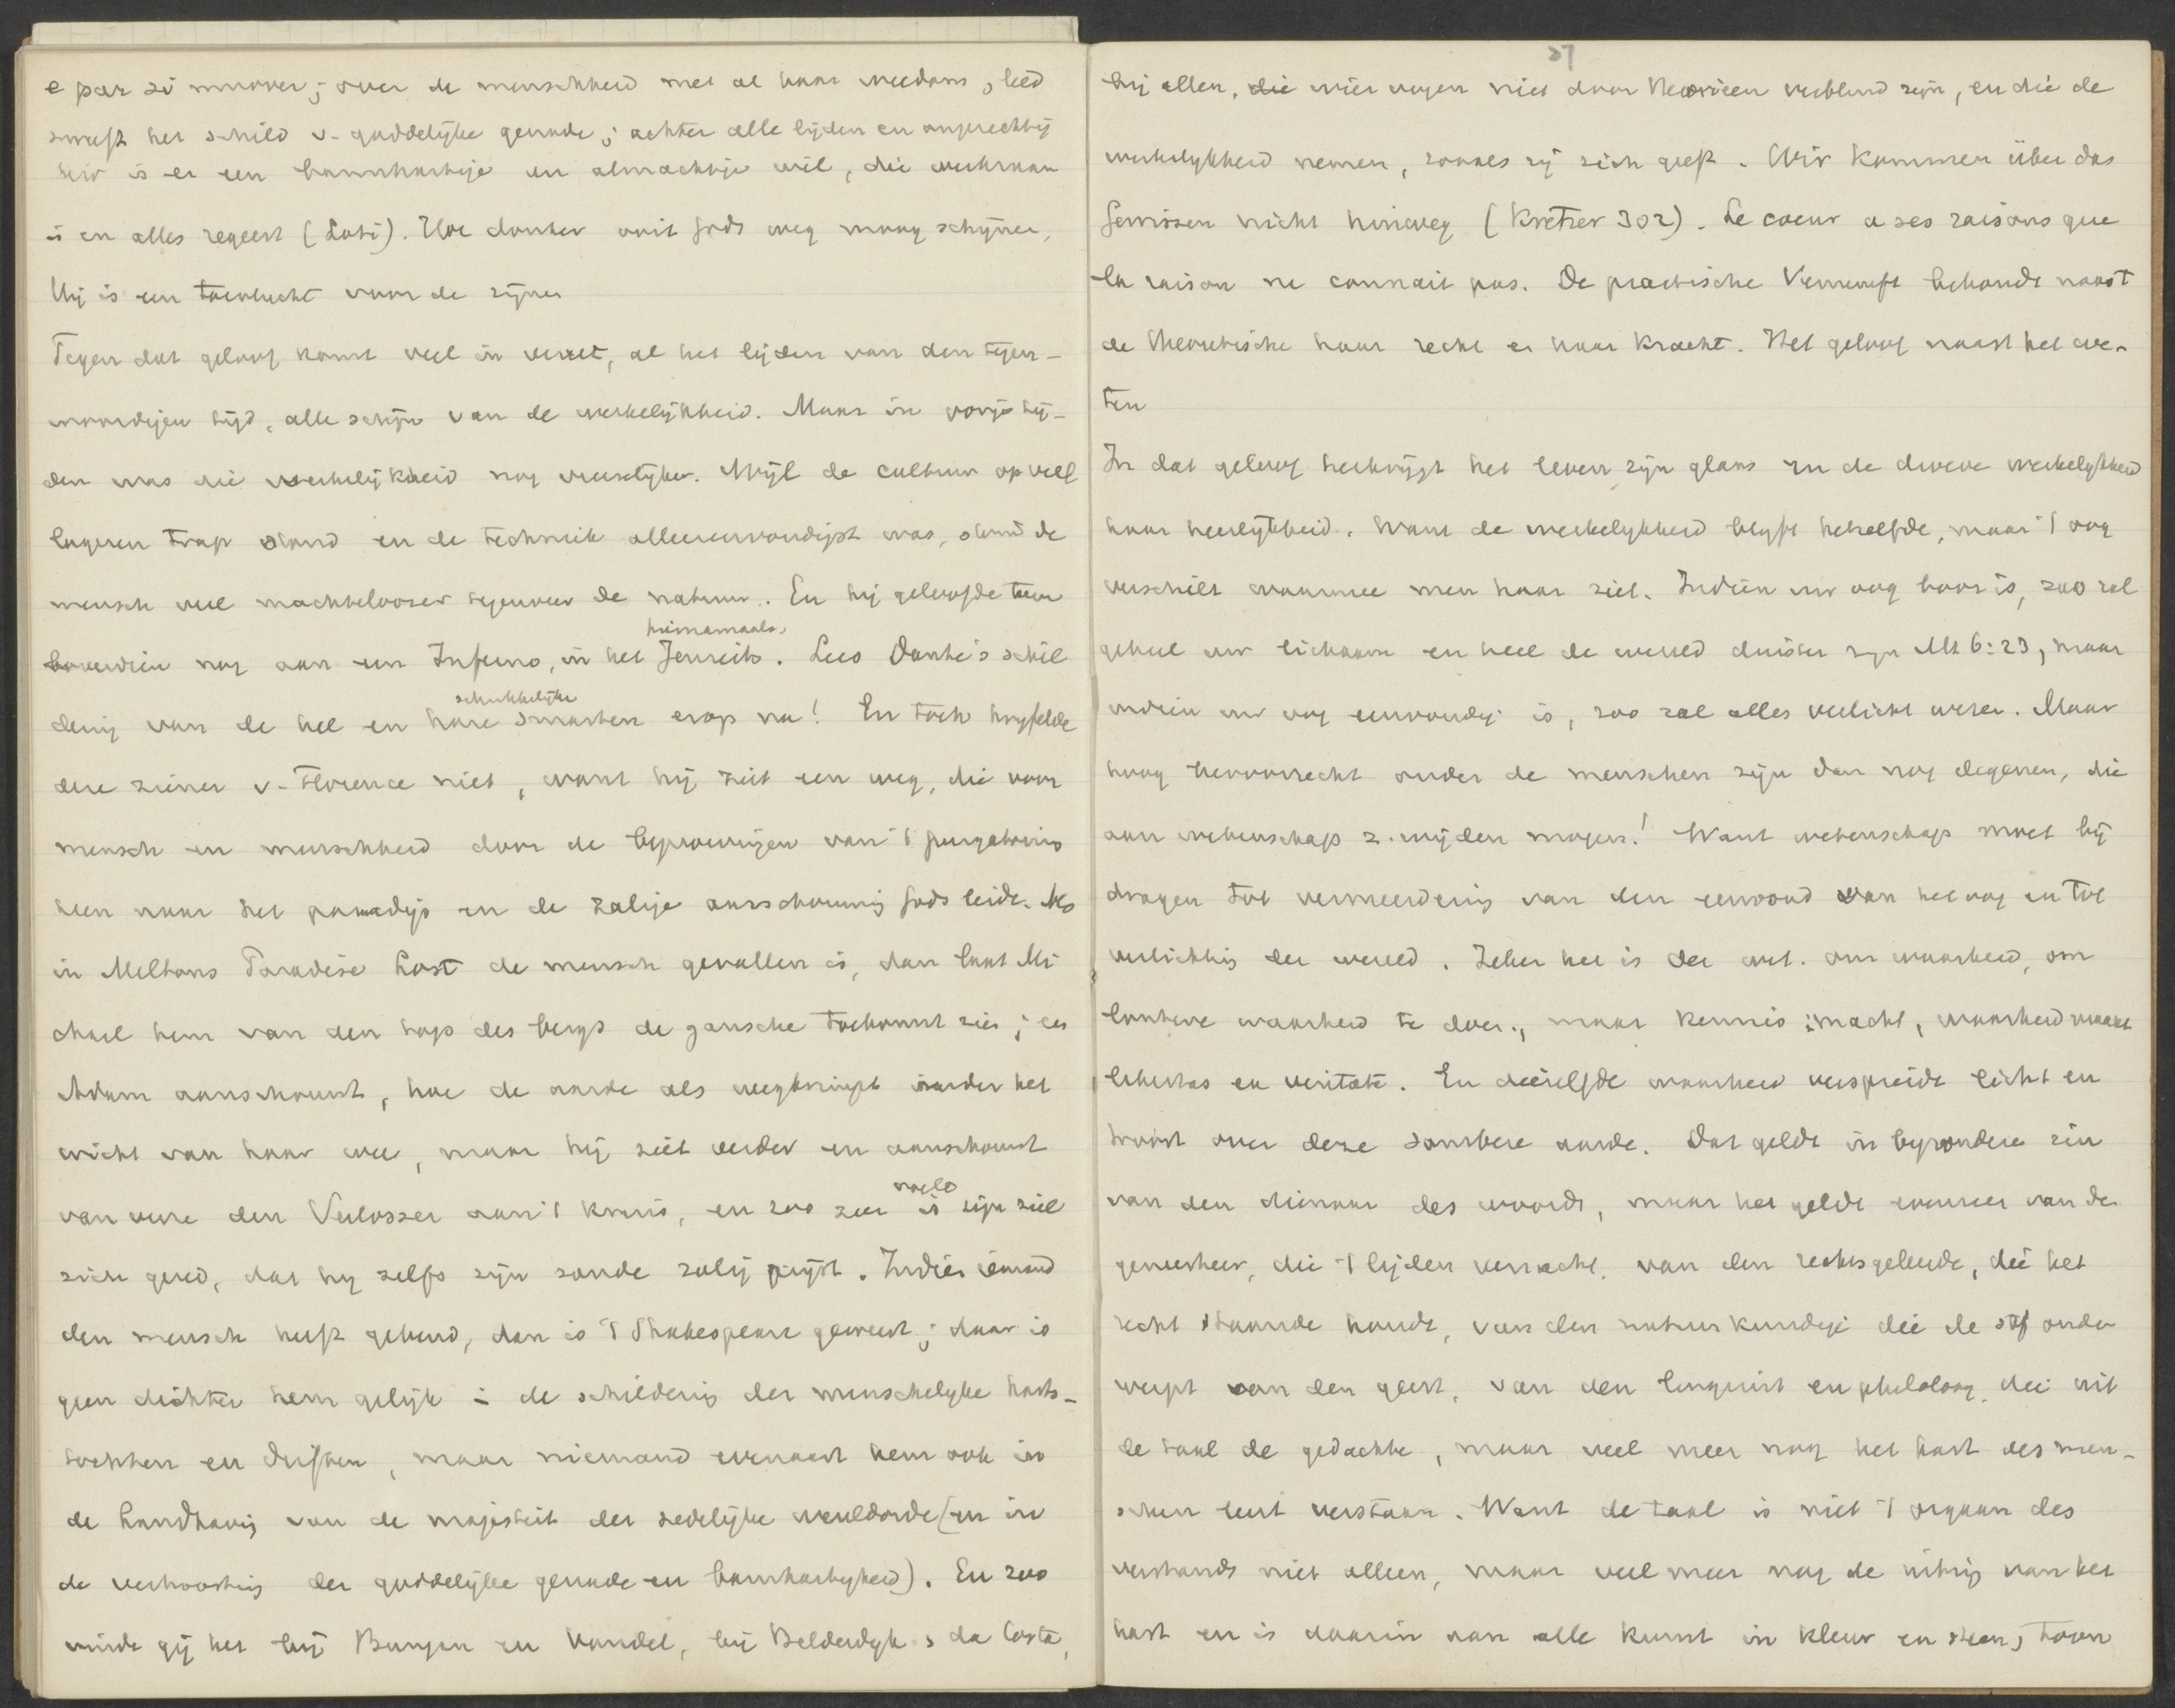 e par si muover; over de menschheid met al haar weedom, leed
zweeft het schild v. goddelijke genade; achter alle lijden en ongerechtig
heid is er een barmhartige en almachtige wil, die
is en alles regeert (Loti). Hoe donker ooit Gods weg moog schijnen,
Hij is een toevlucht voor de zijnen
Tegen dat geloof komt veel in verzet, al het lijden van den tegen-
woordigen tijd, alle schijn van de werkelijkheid. Maar in vorige tij-
den was die werkelijkheid nog vreeselijker. Wijl de cultuur op veel
lageren trap stond en de techniek allereenvoudigst was, stond de
mensch veel machteloozer tegenover de natuur. En hij geloofde toen
hiernamaals.
bovendien nog aan een Inferno, in het Jenseits. Lees Dante's schil
schrikkelijke
dering van de hel en hare smarten erop na! En toch twijfelde
deze ziener v. Florence niet, want hij ziet een weg, die voor
mensch en menschheid door de beproevingen van 't purgatorio
heen naar het paradijs en de zalige aanschouwing Gods leidt. Als
in Miltons Paradise Lost de mensch gevallen is, dan laat Mi
chael hem van den top des bergs de gansche toekomst zien; en
Adam aanschouwt, hoe de aarde als wegkrimpt onder het
wicht van haar wee, maar hij ziet verder en aanschouwt
van verre den Verlosser aan 't kruis, en zoo zeer is zijn ziel
zich gered, dat hij zelfs zijn zonde zalig prijst. Indien iemand
den mensch heeft gekend, dan is 't Shakespeare geweest; daar is
geen dichter hem gelijk in de schildering der menschelijke harts-
tochten en driften, maar niemand evenaart hem ook in
de handhaving van de majesteit der zedelijke wereldorde (en in
de verheerlijking der goddelijke genade en barmhartigheid). En zoo
vindt gij het bij Bunyan en Vondel, bij Bilderdijk en da Costa,
27
bij allen, die wier oogen niet door theorieen verblind zijn, en die de
werkelijkheid nemen, zooals zij zich geeft. Wir kommen über das
Gewissen nicht hinweg (Kretzer 302). Le coeur a ses raisons que
la raison ne connait pas. De practische Vernunft behoudt naast
de theoretische haar recht en haar kracht. Het geloof naast het we-
ten
In dat geloof herkrijgt het leven zijn glans en de dorre werkelijkheid
haar heerlijkheid. Want de werkelijkheid blijft hetzelfde, maar 't oog
verschilt waarmee men haar ziet. Indien uw oog boos is, zoo zal
geheel uw lichaam en heel de wereld duister zijn Mt 6:23, maar
indien uw oog eenvoudig is, zoo zal alles verlicht wezen. Maar
hoog bevoorrecht onder de menschen zijn dan nog degenen, die
aan wetenschap z. wijden mogen! Want wetenschap moet bij
dragen tot vermeerdering van den eenvoud van het oog en tot
verlichting der wereld. Zeker het is der wet. om waarheid, om
loutere waarheid te doen, maar kennis is macht, waarheid maakt
libertas ex veritate. En diezelfde waarheid verspreidt licht en
troost over deze sombere aarde. Dat geldt in bijzondere zin
van den dienaar des woords, maar het geldt evenzeer van de
geneesheer, die 't lijden verzacht, van den rechtsgeleerde, die het
recht staande houdt, van den natuurkundige die de stof onder
werpt aan den geest, van den linguist en philoloog, die uit
de taal de gedachte, maar veel meer nog het hart des men-
schen leert verstaan. Want de taal is niet 't orgaan des
verstands niet alleen, maar veel meer nog de uiting van het
hart en is daarin aan alle kunst in kleur en steen, toon